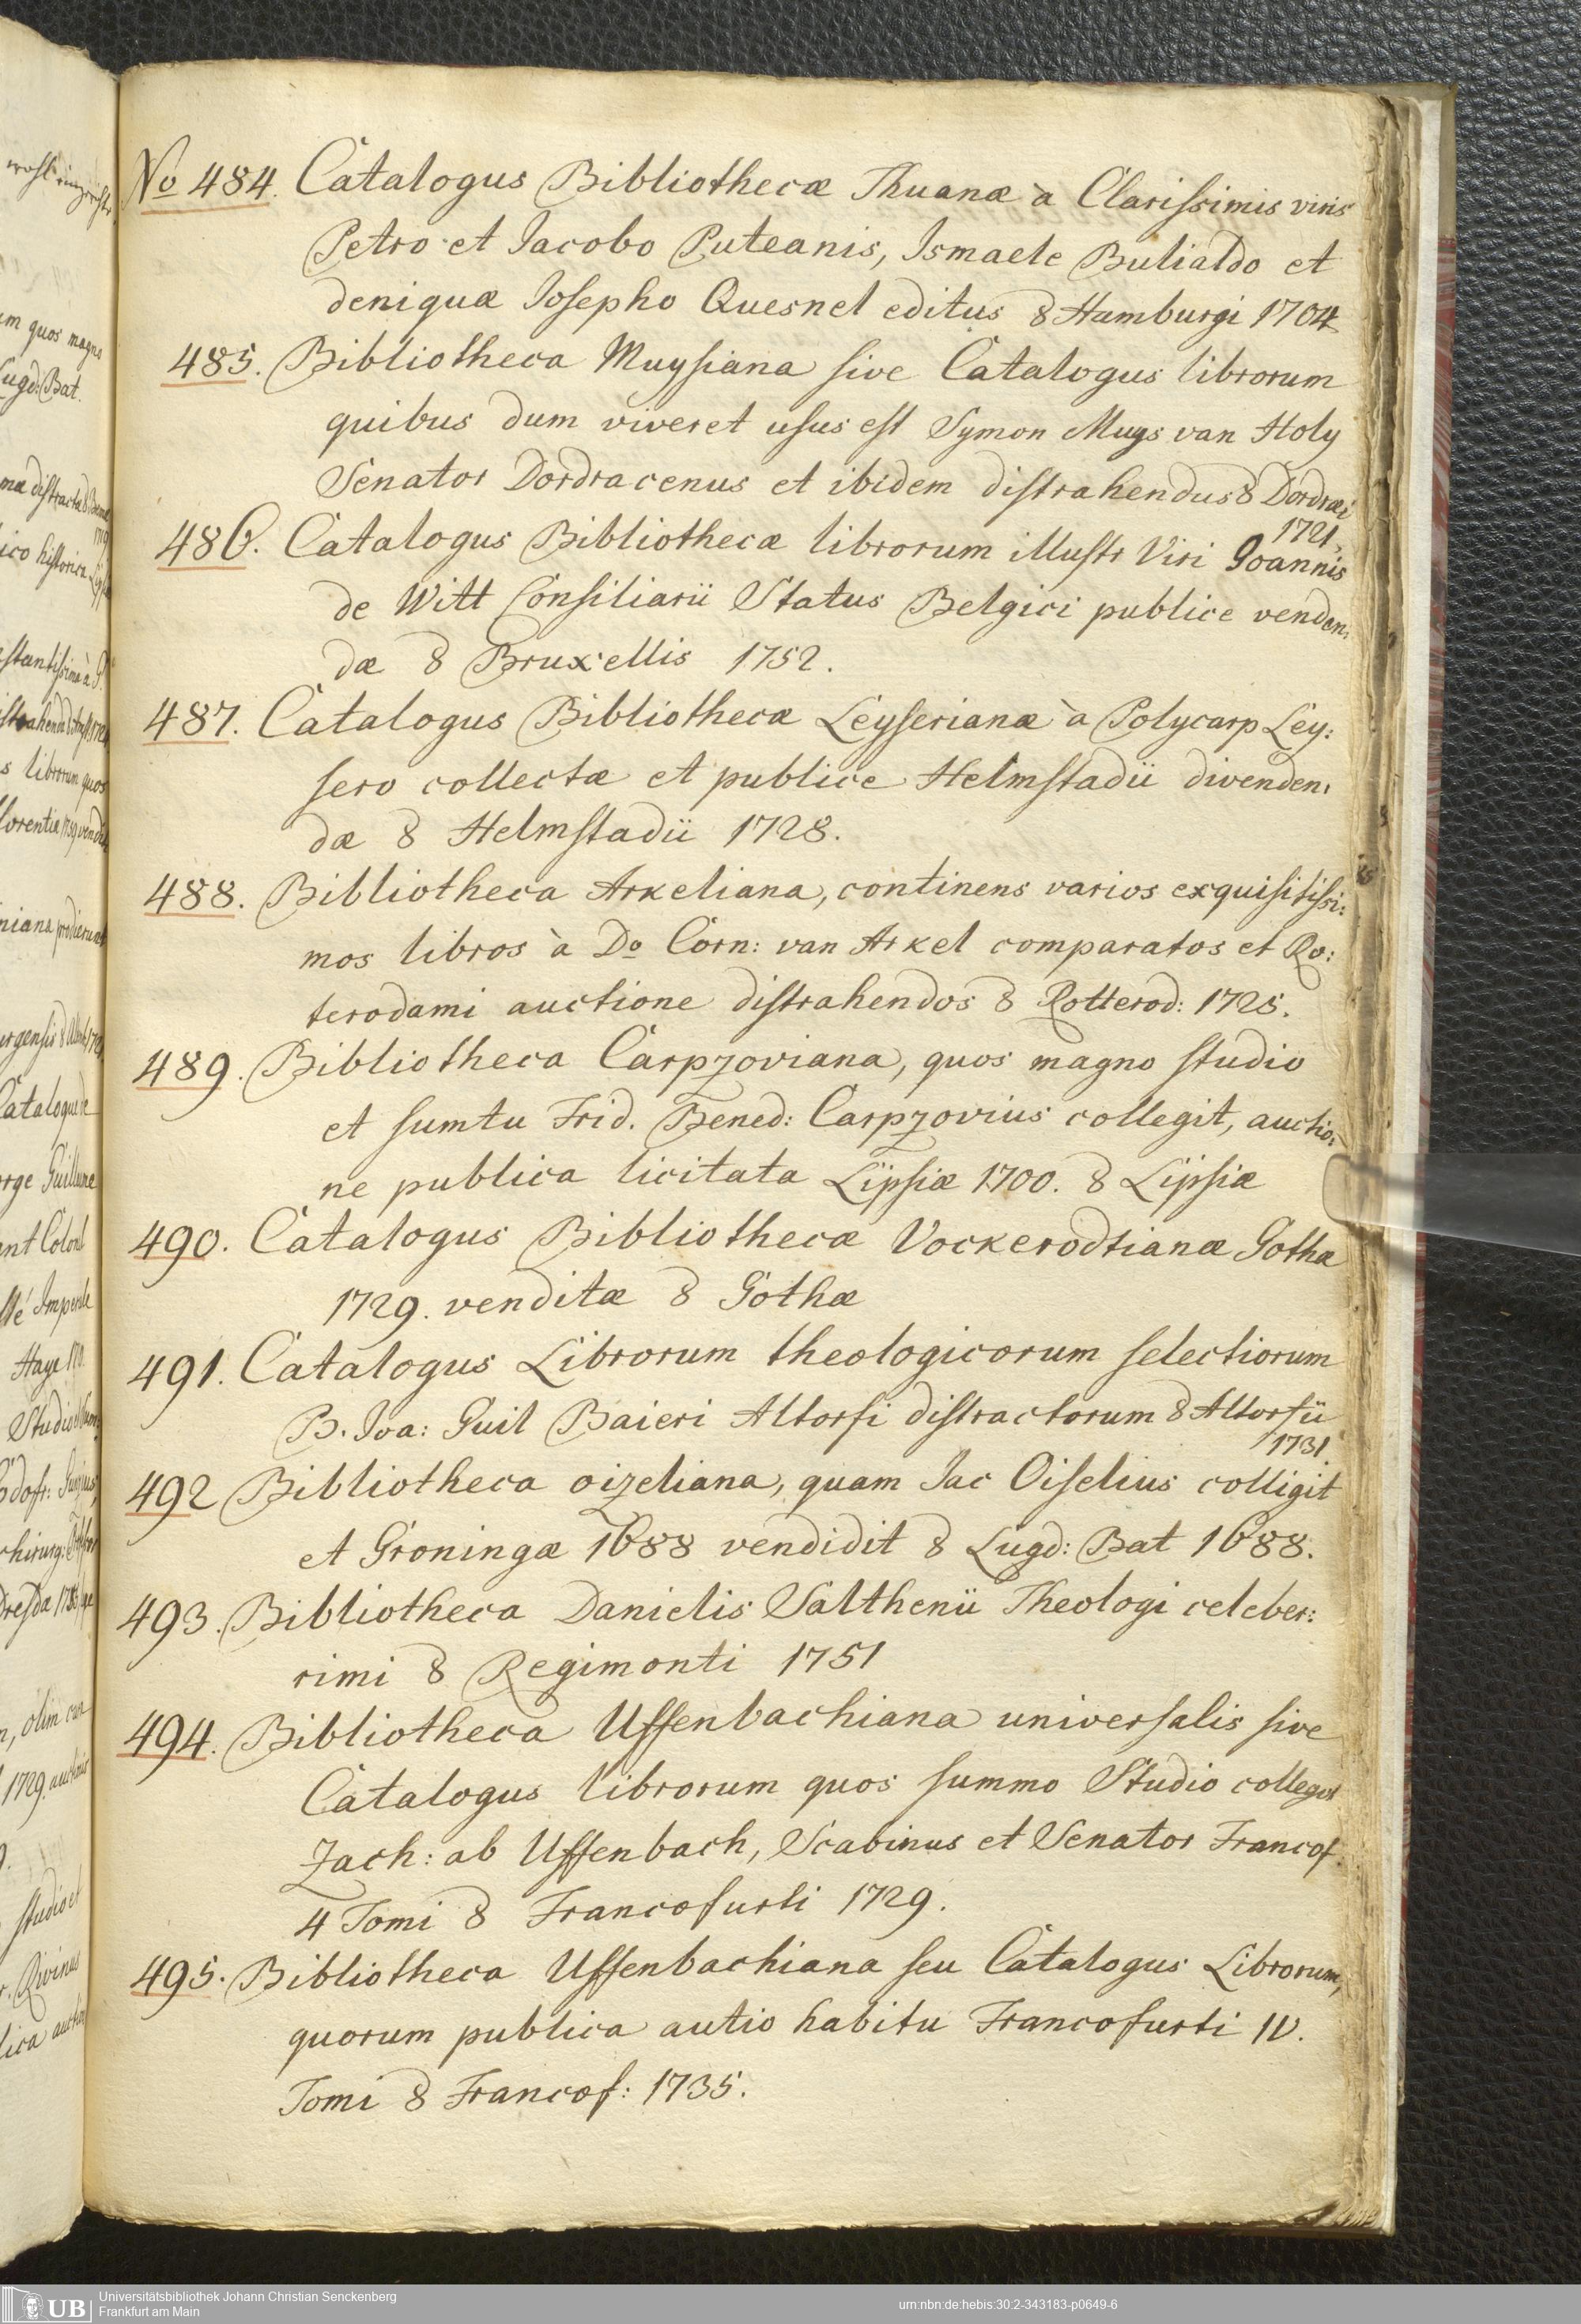 No 484. Catalogus Bibliothecæ Thuanæ à Clarissimis viris
Petro et Jacobo Puteanis, Ismaele Bulialdo et
deniquæ Josepho Quesnel editus 8 Hamburgi 1704
485. Bibliotheca Muysiana sive Catalogus librorum
quibus dum viveret usus est Symon Muys van Holy
Senator Dordracenus et ibidem distrahendus 8 Dordraci
1721.
486. Catalogus Bibliothecæ librorum illustr Viri Joannis
de Witt Consiliarii Status Belgici publice venden:
dæ 8 Bruxellis 1752.
487. Catalogus Bibliothecæ Leyserianæ à Polycarp Ley:
sero collectæ et publice Helmstadii divenden:
dæ 8 Helmstadii 1728.
488. Bibliotheca Arkeliana, continens varios exquisitissi:
mos libros à Do Corn: van Arkel comparatos et Ro:
terodami auctione distrahendos 8 Rotterod: 1725.
489. Bibliotheca Carpzoviana, quos magno studio
et sumtu Frid. Bened: Carpzovius collegit, auctio:
ne publica licitata Lipsiæ 1700. 8 Lipsiæ
490. Catalogus Bibliothecæ Vockerodtianæ Gothæ
1729. venditæ 8 Gothæ
491. Catalogus Librorum theologicorum selectiorum
B. Joa: Guil Baieri Altorfi distractorum 8 Altorfii
1731.
492 Bibliotheca oizeliana, quam Jac Oiselius colligit
et Groningæ 1688 vendidit 8 Lugd: Bat 1688.
493. Bibliotheca Danielis Salthenii Theologi celeber:
rimi 8 Regimonti 1751
494. Bibliotheca Uffenbachiana universalis sive
Catalogus librorum quos summo Studio collegit
Zach: ab Uffenbach, Scabinus et Senator Francof.
4 Tomi 8 Francofurti 1729.
495. Bibliotheca Uffenbachiana seu Catalogus Librorum,
quorum publica autio habitu Francofurti IV.
Tomi 8 Francof: 1735.
UB
Universitätsbibliothek Johann Christian Senckenberg
Frankfurt am Main
urn:nbn:de:hebis:30:2-343183-p0649-6